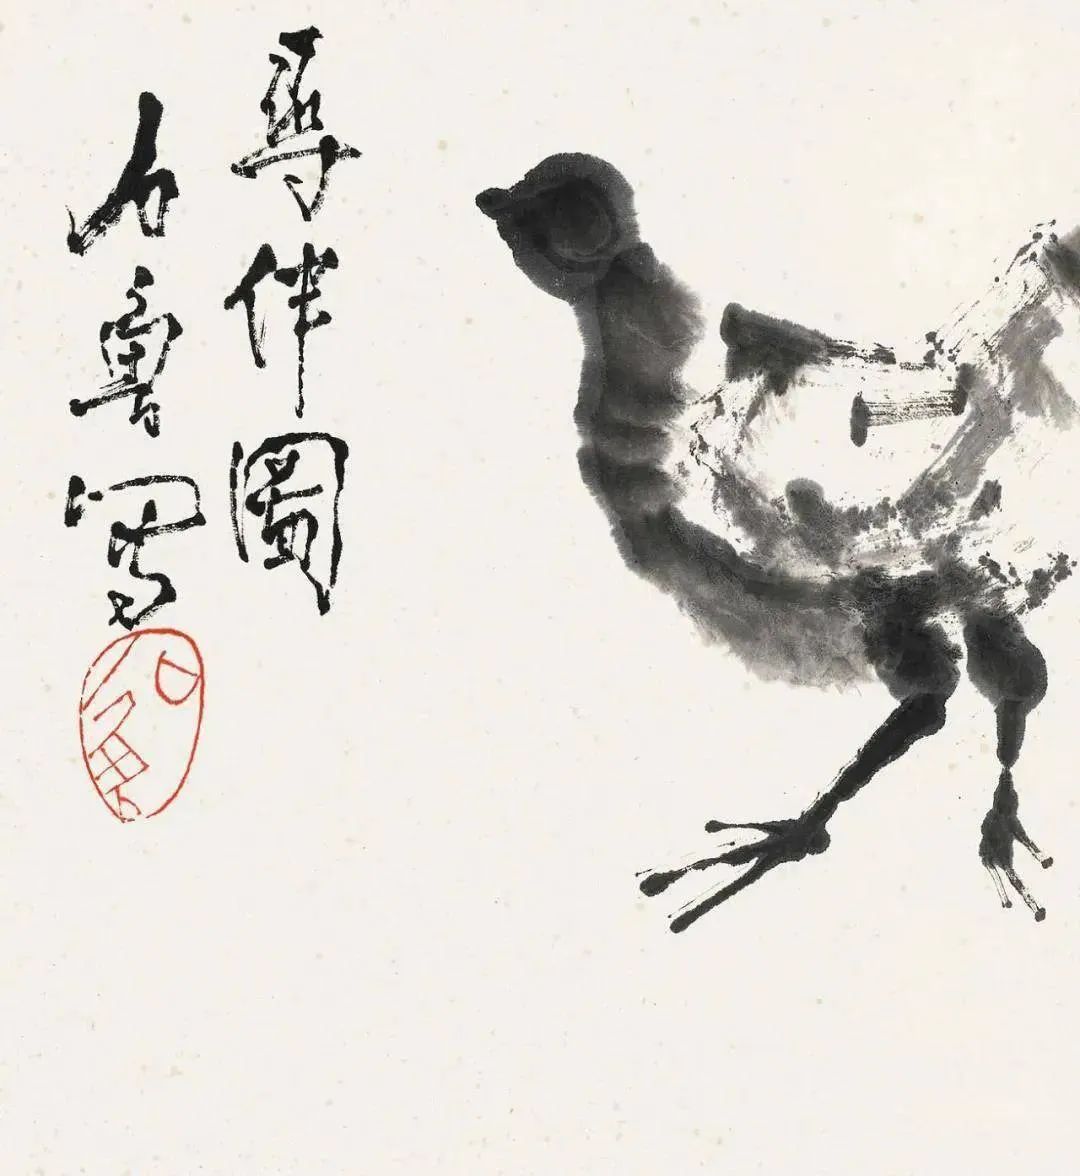 尋伴圖
石魯寫
石魯